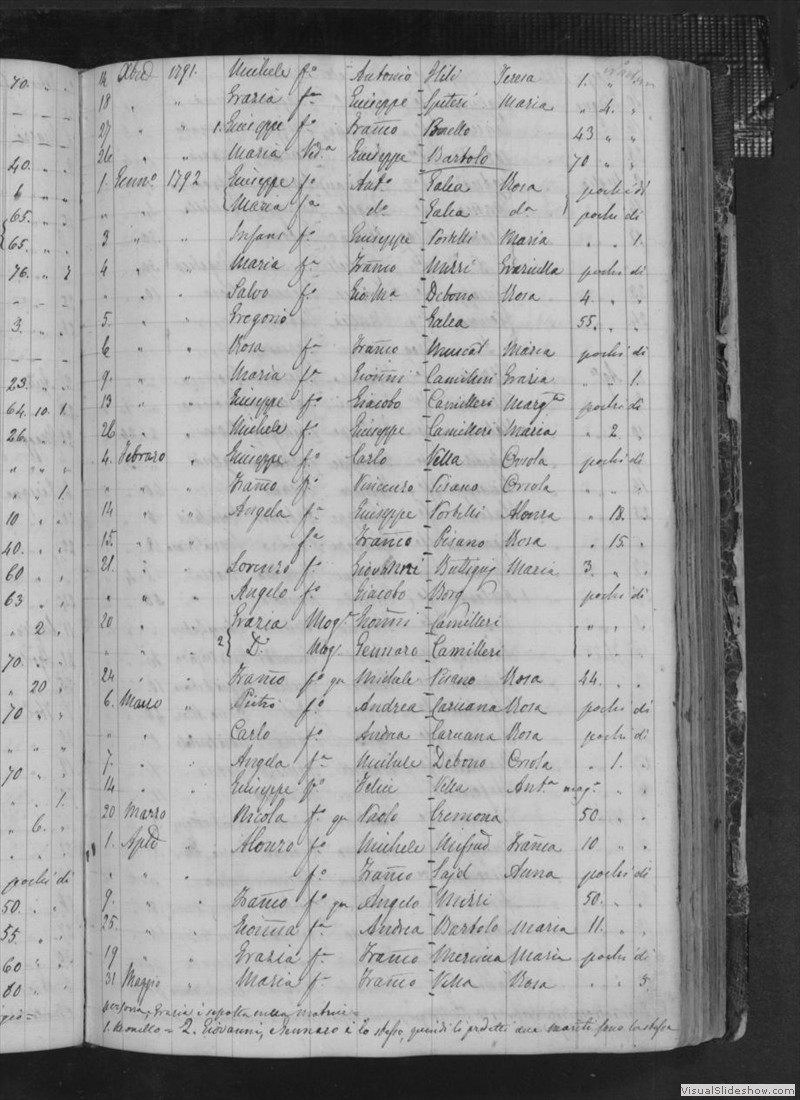 70.
40.
6
65.
65.
76. " 2
3.
23.
64. 10. 1.
26.
" " 1
10
40.
60
63
" 2
70.
" 20
70
70
" " 1.
" 6.
pochi di
50.
55.
60
80
14 Xbre 1791. Michele fo Antonio Teresa 1.
18 " " Grazia fa Giuseppe Spiteri Maria " 4. "
27 " " 1. Giuseppe fo Franco Bonello 43 " "
26 " " Maria Vda Giuseppe Bartolo 70 " "
1. Genno 1792 Giuseppe fo Anto Galea Rosa pochi di
" " " Maria fa do Galea da pochi di
3 " " Infans fo Giuseppe Portelli Maria " " 1.
4 " " Maria fa Franco Graziella pochi di
" " " Salvo fo Gio Ma Debono Rosa 4 " "
5. " " Gregorio Galea 55. " "
6 " " Rosa fa Franco Muscat Maria pochi di
9 " " Maria fa Gioñni Camilleri Grazia " " 1.
13 " " Giuseppe fo Giacobo Camilleri Margta pochi di
26 " " Michele fo Giuseppe Camilleri Maria " 2. "
4. Febraro " Giuseppe fo Carlo Vella Orsola pochi di
" " " Franco fo Vincenzo Pisano Orsola " " "
14 " " Angela fa Giuseppe Portelli Alonza " 18. "
15. " " fa Franco Pisano Rosa " 15. "
21. " " Lorenzo fo Giovanni Buttigieg Maria 3. "
" " " Angelo fo Giacobo Borg pochi di
20 " " Grazia Mogl. Gioñni Camilleri " " "
" " " 2 { Da Mogl. Gennaro Camilleri " " "
24 " " Franco fo qm Michele Pisano Rosa 44. " "
6. Marzo " Pietro fo Andrea Caruana Rosa pochi di
" " " Carlo fo Andrea Caruana Rosa pochi di
7. " " Angela fa Michele Debono Orsola " 1. "
14 " " Giuseppe fo Felice Vella Anta
20 Marzo " Nicola fo qm Paolo Cremona 50. " "
1. Aple " Alonzo fo Michele Mifsud Franca 10 " "
" " " fo Franco Sajd Anna pochi di
9. " " Franco fo qm Angelo 50. " "
25. " " Gioñna fa Andrea Bartolo Maria 11. " "
19 " " Grazia fa Franco Mercieca Maria pochi di
31 Maggio " Maria fa Franco Vella Rosa " " 3.
Grazia è sepolta nella matrice
1. Bonello = 2. Giovanni, e Gennaro è lo stesso, quindi le predetti due morti sono la stessa
VisualSlideshow.com